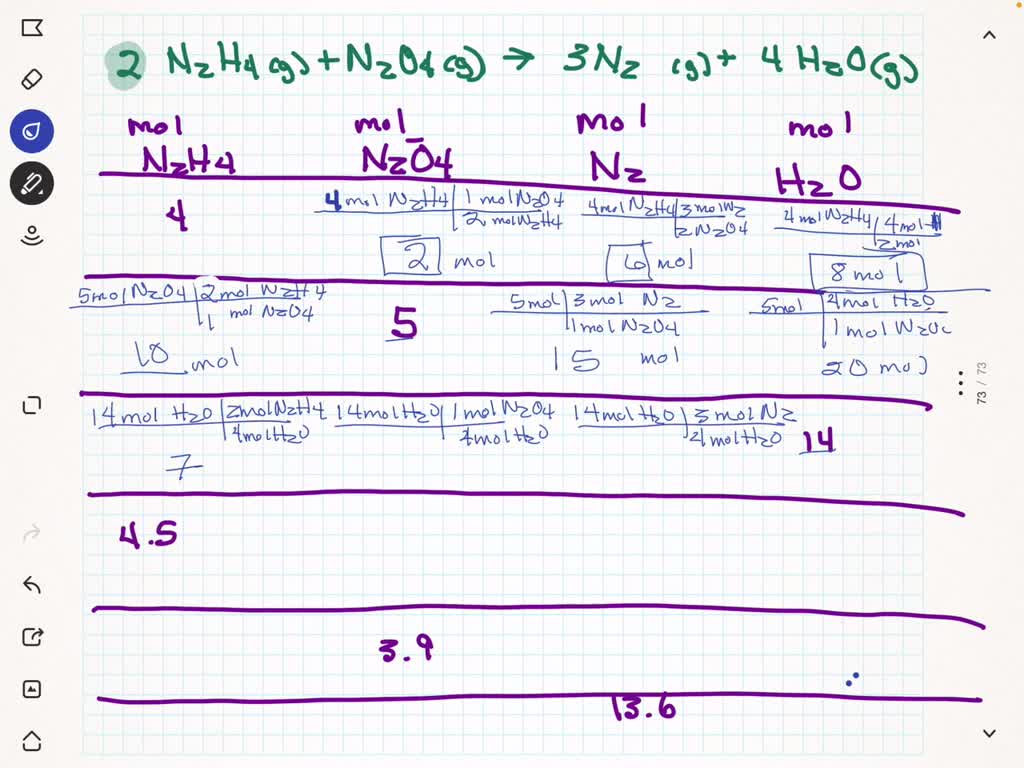 2 N2H4(g) + N2O4(g) → 3N2 (g) + 4 H2O(g)
mol N2H4
mol N2O4
mol N2
mol H2O
4
4 mol N2H4 | 1 mol N2O4
2 mol N2H4
2 mol
4 mol N2H4 | 3 mol N2
2 N2O4
6 mol
4 mol N2H4 | 4 mol
2 mol
8 mol
5 mol N2O4 | 2 mol N2H4
1 mol N2O4
10 mol
5
5 mol | 3 mol N2
1 mol N2O4
15 mol
5 mol | 4 mol H2O
1 mol N2O
20 mol
14 mol H2O | 2 mol N2H4
4 mol H2O
7
14 mol H2O | 1 mol N2O4
4 mol H2O
14 mol H2O | 3 mol N2
4 mol H2O
14
4.5
3.9
13.6
73 / 73